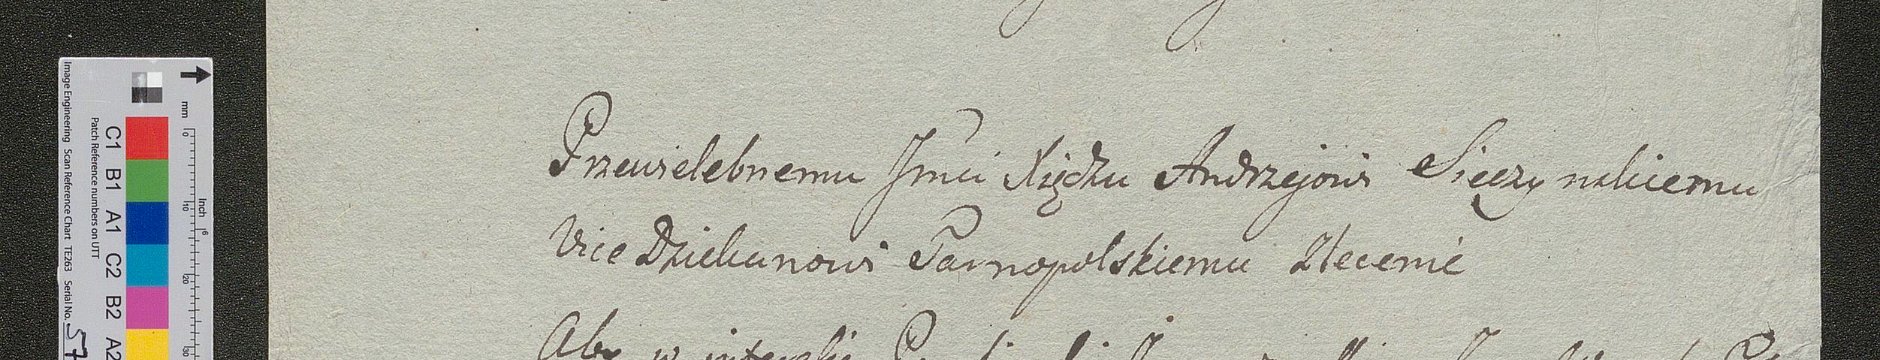 Przewielebnemu Jmci Xiędzu Andrzejowi Sieczynskiemu
Vice Dziekanowi Tarnopolskiemu Zlecenie
Aby w
Image Engineering Scan Reference Chart TE263 Serial No. 57
Patch Reference numbers on UTT
C1 B1 A1 C2 B2 A2
mm 0 10 20 30
Inch